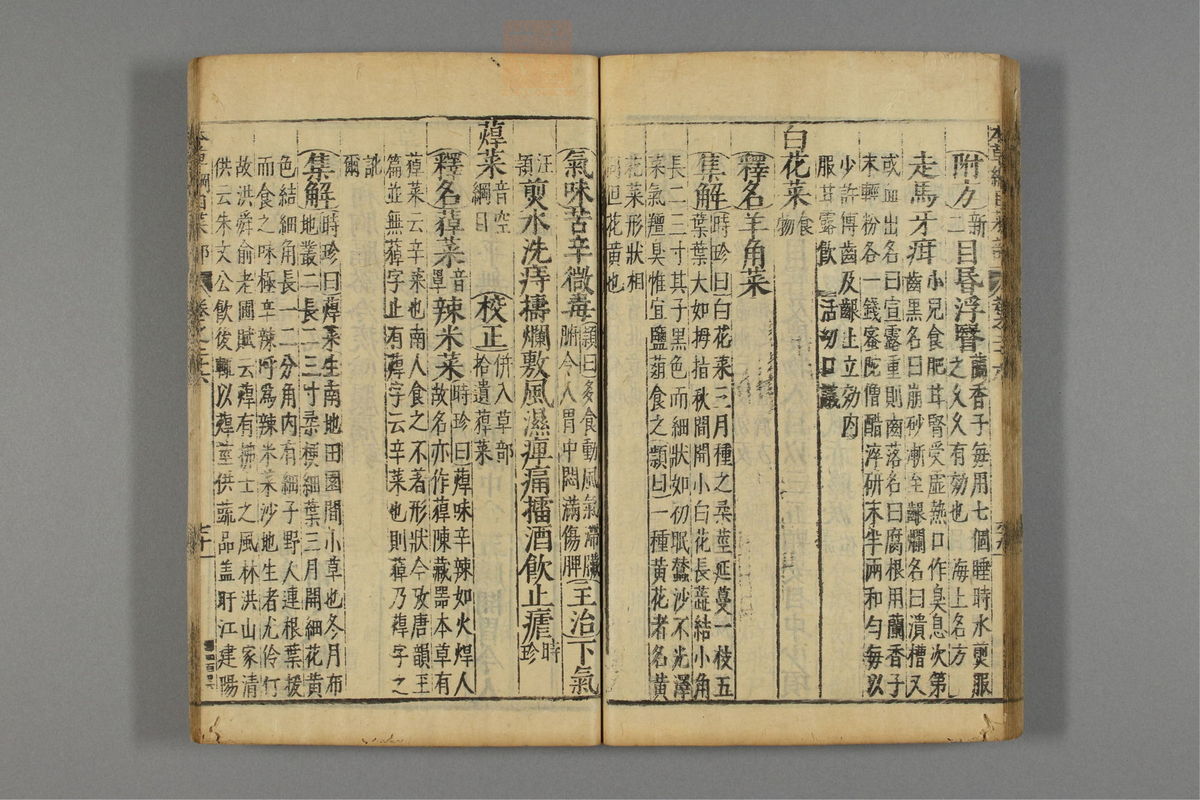 附方新二目昏浮瞖蘭香子每用七個睡時水煎服
之久久有効也 海上名方
走馬牙疳小兒食肥甘腎受虛熱口作臭息次第
齒黑名曰崩砂漸至齦爛名曰潰槽又
或血出名曰宣露重則齒落名曰腐根用蘭香子
末輕粉各一錢蜜陀僧醋淬研末半兩和勻每以
少許傅齒及齦上立効內
服甘露飲 活幼口議
白花菜食物
釋名羊角菜
集解時珍曰白花菜三月種之柔莖延蔓一枝五
葉葉大如拇指秋間開小白花長蕋結小角
長二三寸其子黑色而細狀如初眠蠶沙不光澤
菜氣羶臭惟宜鹽葅食之頴曰一種黃花者名黃
花菜形狀相
同但花黃也
氣味苦辛微毒頴曰多食動風氣滯臟
腑令人胃中悶滿傷脾主治下氣
汪頴煎水洗痔擣爛敷風濕痺痛擂酒飲止瘧時珍
蔊菜音罕綱目校正併入草部
拾遺蔊菜
釋名蔊菜音罩辣米菜時珍曰蔊味辛辣如火焊人
故名亦作蔊陳藏器本草有
蔊菜云辛菜也南人食之不著形狀今攷唐韻玉
篇並無蔊字止有蔊字云辛菜也則蔊乃蔊字之
訛
爾
集解時珍曰蔊菜生南地田園間小草也冬月布
地叢二長二三寸柔梗細葉三月開細花黃
色結細角長一二分角內有細子野人連根葉拔
而食之味極辛辣呼爲辣米菜沙地生者尤伶仃
故洪舜俞老圃賦云蔊有拂士之風林洪山家清
供云朱文公飲後輒以蔊莖供蔬品蓋盱江建陽